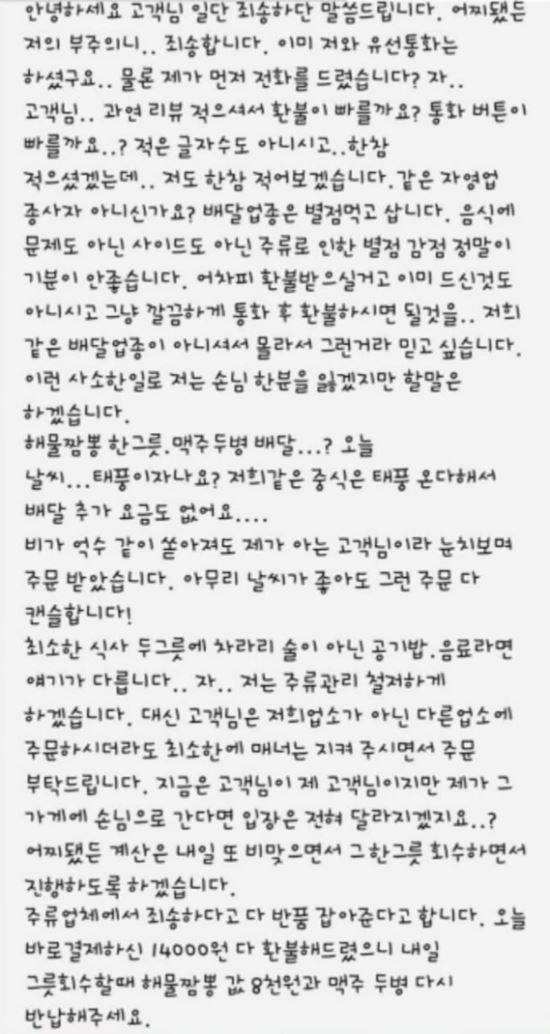 안녕하세요 고객님 일단 죄송하단 말씀드립니다. 어찌됐든
저의 부주의니.. 죄송합니다. 이미 저와 유선통화는
하셨구요.. 물론 제가 먼저 전화를 드렸습니다? 자..
고객님.. 과연 리뷰 적으셔서 환불이 빠를까요? 통화 버튼이
빠를까요..? 적은 글자수도 아니시고..한참
적으셨겠는데.. 저도 한참 적어보겠습니다.같은 자영업
종사자 아니신가요? 배달업종은 별점먹고 삽니다. 음식에
문제도 아닌 사이드도 아닌 주류로 인한 별점 감점 정말이
기분이 안좋습니다. 어차피 환불받으실거고 이미 드신것도
아니시고 그냥 깔끔하게 통화 후 환불하시면 될것을.. 저희
같은 배달업종이 아니셔서 몰라서 그런거라 믿고 싶습니다.
이런 사소한일로 저는 손님 한분을 잃겠지만 할말은
하겠습니다.
해물짬뽕 한그릇.맥주두병 배달...? 오늘
날씨...태풍이자나요? 저희같은 중식은 태풍 온다해서
배달 추가 요금도 없어요....
비가 억수 같이 쏟아져도 제가 아는 고객님이라 눈치보며
주문 받았습니다. 아무리 날씨가 좋아도 그런 주문 다
캔슬합니다!
최소한 식사 두그릇에 차라리 술이 아닌 공기밥.음료라면
얘기가 다릅니다.. 자.. 저는 주류관리 철저하게
하겠습니다. 대신 고객님은 저희업소가 아닌 다른업소에
주문하시더라도 최소한에 매너는 지켜 주시면서 주문
부탁드립니다. 지금은 고객님이 제 고객님이지만 제가 그
가게에 손님으로 간다면 입장은 전혀 달라지겠지요..?
어찌됐든 계산은 내일 또 비맞으면서 그한그릇 회수하면서
진행하도록 하겠습니다.
주류업체에서 죄송하다고 다 반품 잡아준다고 합니다. 오늘
바로결제하신 14000원 다 환불해드렸으니 내일
그릇회수할때 해물짬뽕 값 8천원과 맥주 두병 다시
반납해주세요.